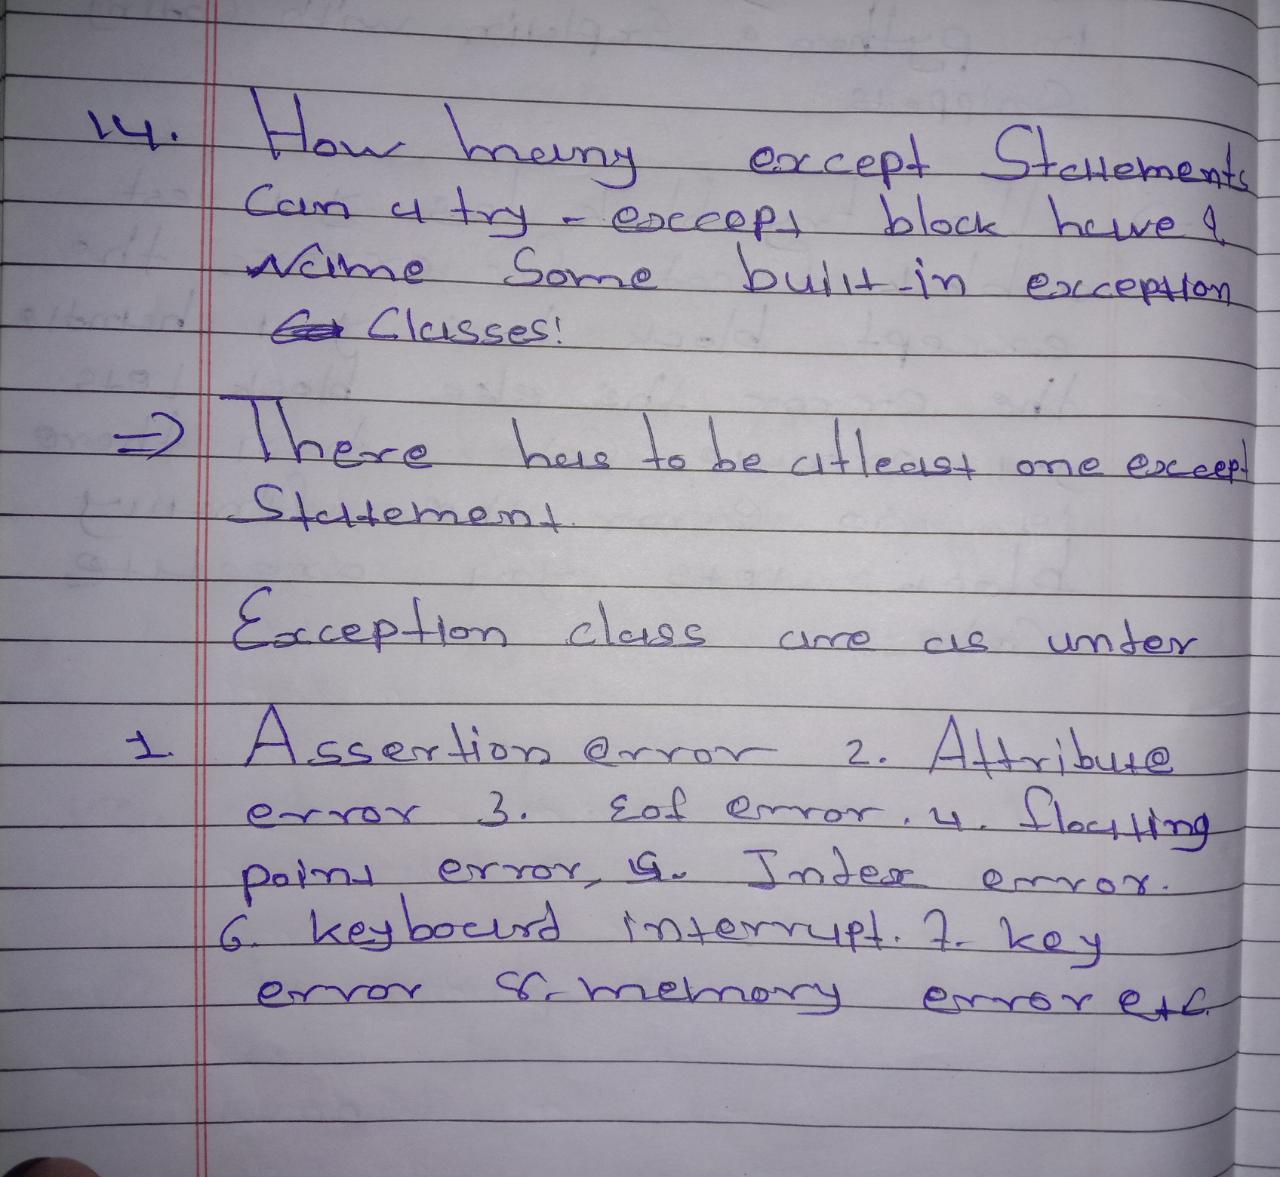 14. How many except Statements
Can a try - except block have &
Name Some built-in exception
Classes!
⇒ There has to be atleast one except
Statement.
Exception class are as under
1. Assertion error 2. Attribute
error 3. Eof error. 4. floating
point error, 5. Index error.
6. keyboard interrupt. 7. key
error 8. memory error etc.